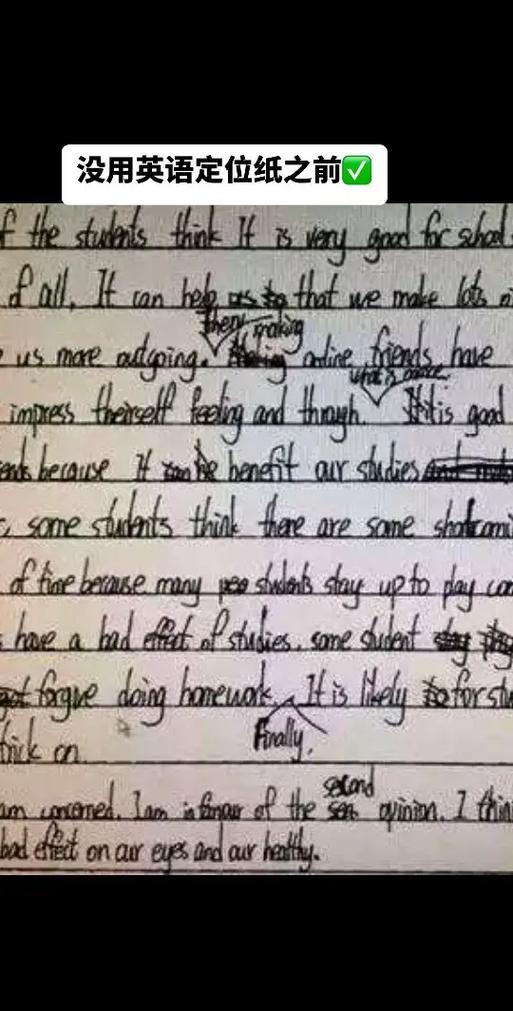 没用英语定位纸之前✅
f the students think It is very good for school
of all, It can help us to that we make lots o
then making
us more outgoing. online friends have
what's more.
impress theirself feeling and through. It is good
ends because It can be benefit our studies
, some students think there are some shortcomi
of time because many peo students stay up to play com
have a bad effect of studies. some student stay play
forgive doing homework. It is likely to for stu
trick on Finally,
second
am concerned. I am in favour of the sen opinion. I thin
bad effect on our eyes and our healthy.